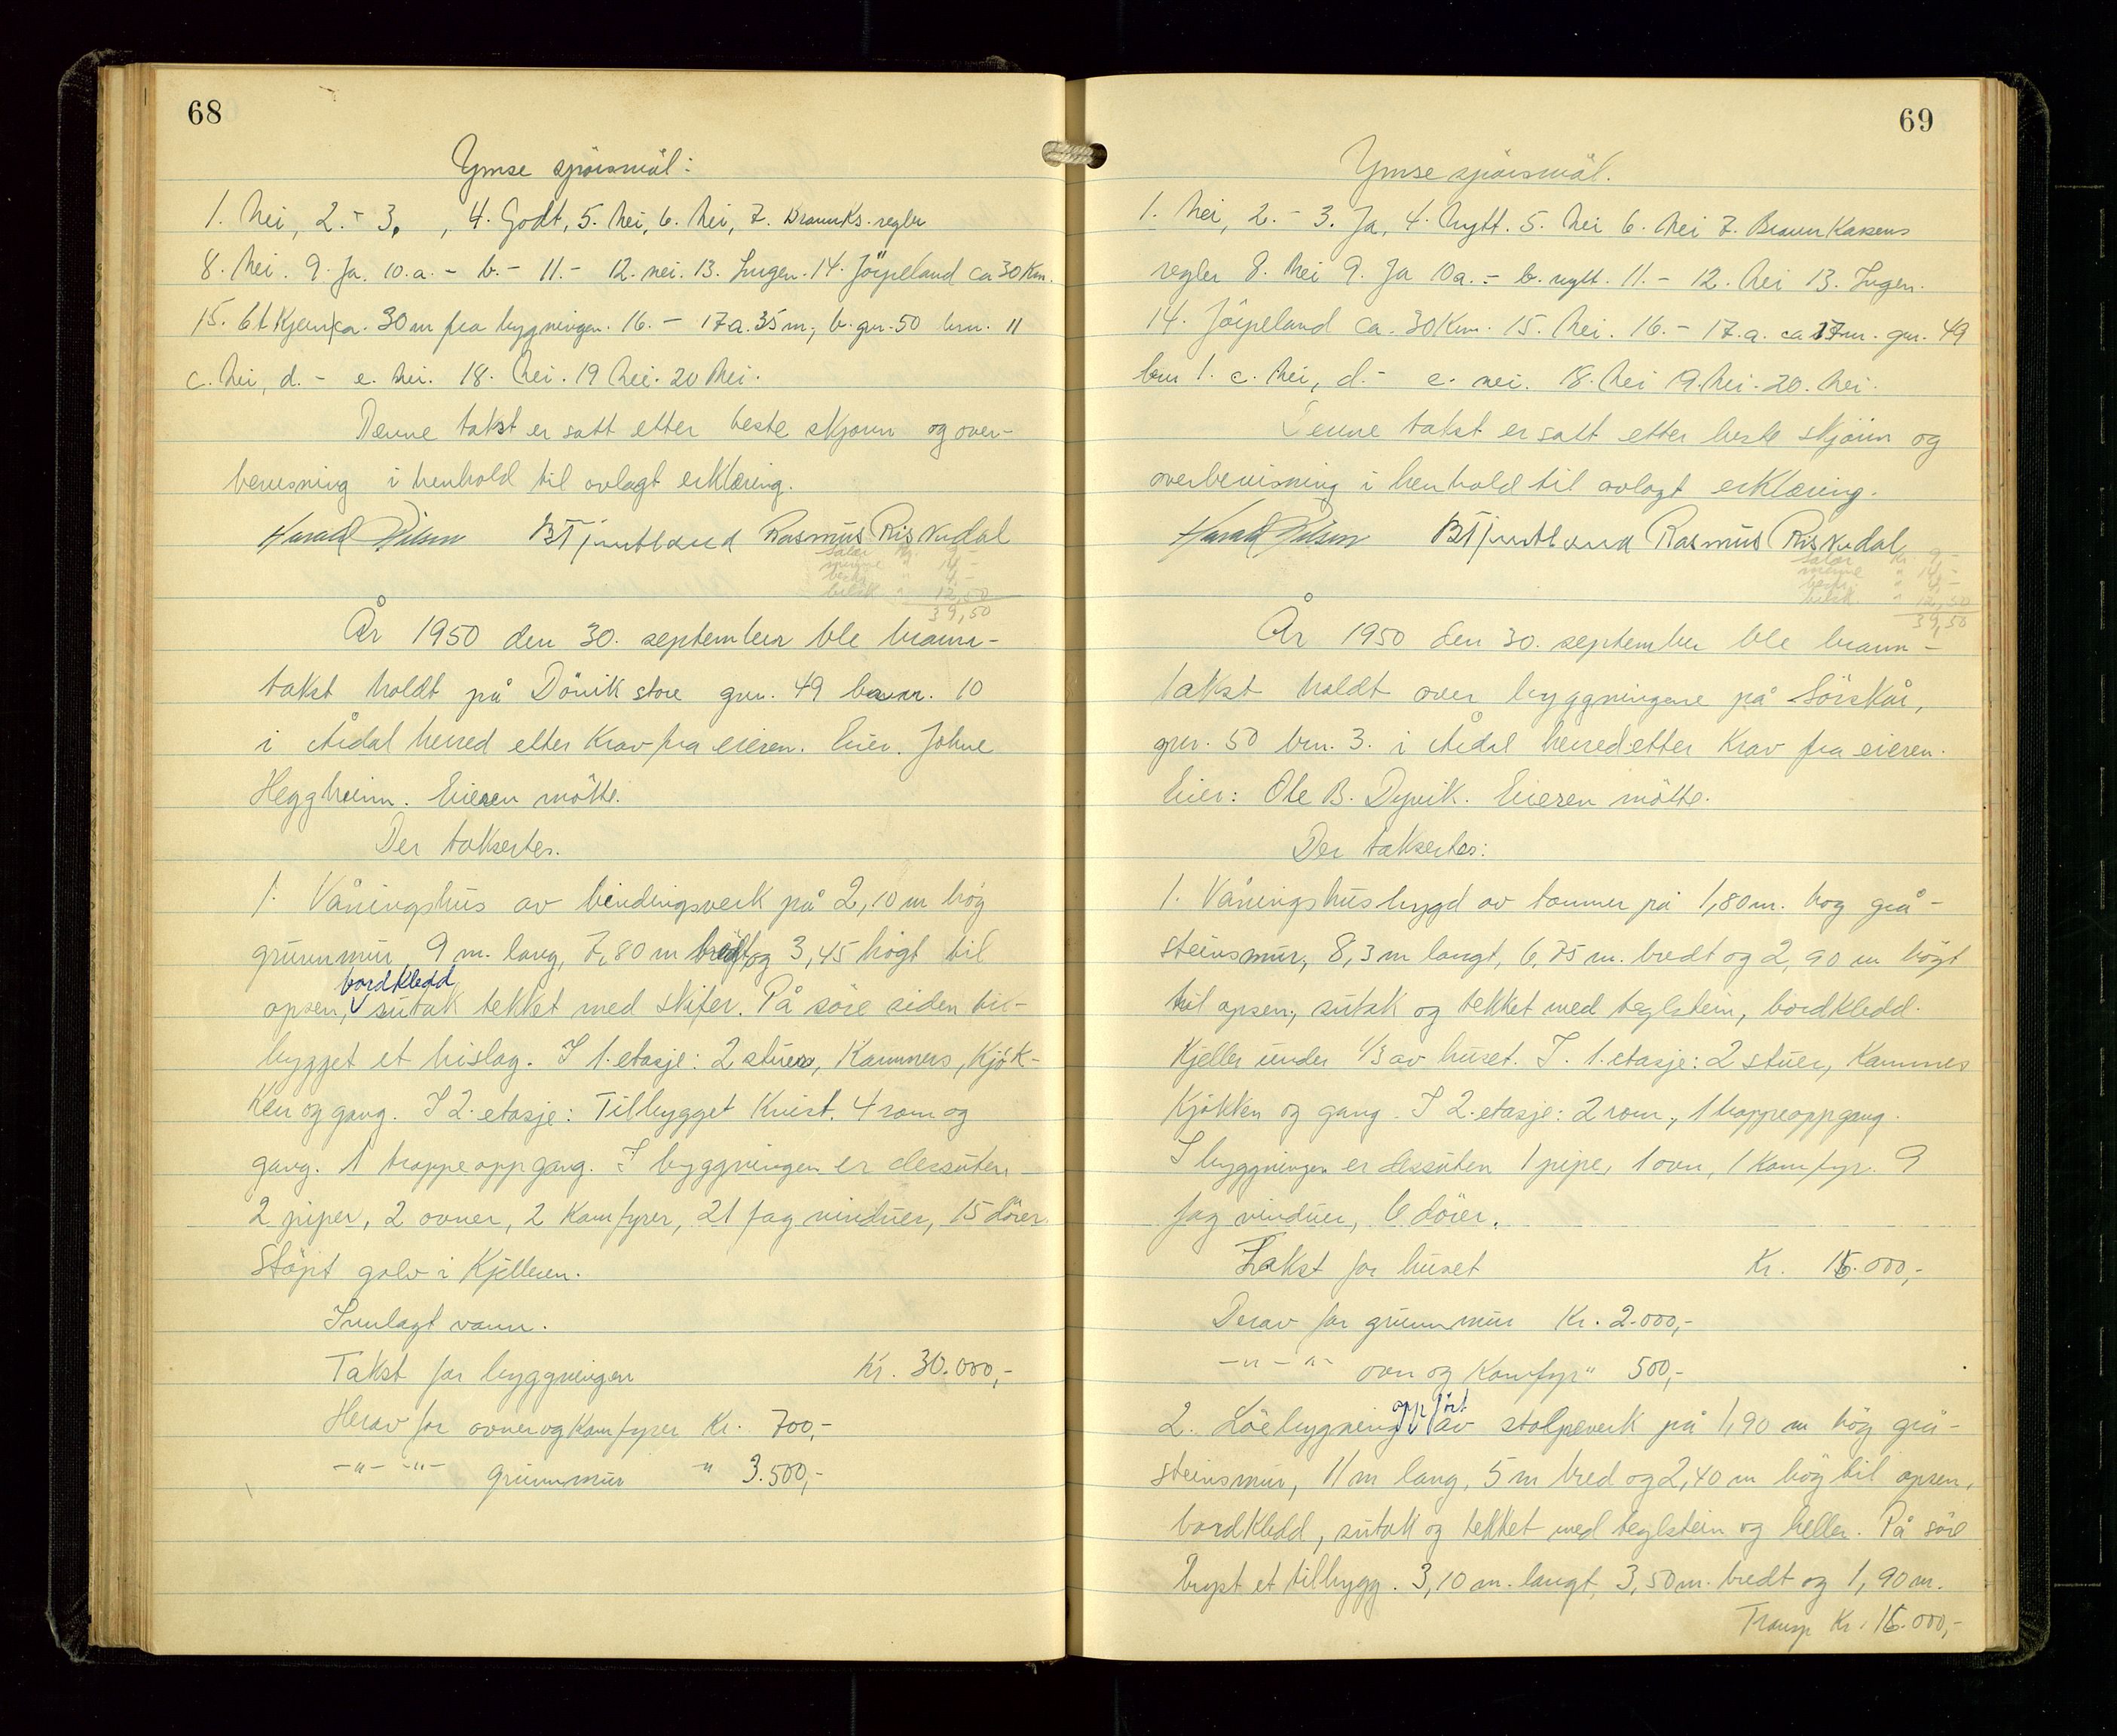 68
Ymse spörsmål:
1. Nei, 2. - 3. , 4. Godt, 5. Nei, 6. Nei, 7. Brannks. regler
8. Nei. 9. Ja. 10. a. - b. - 11. - 12. nei. 13. Ingen. 14. Jörpeland ca 30 Km.
15. Et kjern ca. 30 m fra bygningen. 16. - 17 a. 35 m, b. gn. 50 brn. 11
c. Nei, d. - e. nei. 18. Nei. 19 Nei. 20 Nei.
Denne takst er satt etter beste skjønn og over-
bevisning i henhold til avlagt erklæring.
Harald Pilsen B Tjentland Rasmus Riskedal
Salær Kr. 9,-
" 14,-
" 4,-
bilsk. " 12,50
39,50
År 1950 den 30. september ble brann-
takst holdt på Dövik store gnr. 49 bnr. 10
i Årdal herred etter Krav fra eieren. Eier. Johne
Heggheim. Eieren mötte.
Der taksertes.
1. Våningshus av bindingsverk på 2,10 m hög
grunnmur 9 m. lang, 7,80 m bredt og 3,45 högt til
bordkledd
opsen, sutak tekket med skifer. På söre siden til-
bygget et bislag. I 1. etasje: 2 stuer, Kammers, Kjök-
Ken og gang. I 2. etasje: Tilbygget Kvist. 4 rom og
gang. 1 trappeoppgang. I byggningen er dessuten
2 piper, 2 ovner, 2 Komfyrer, 21 fag vinduer, 15 dörer.
Stöpt golv i Kjelleren.
Innlagt vann.
Takst for byggningen Kr. 30.000,-
Herav for ovner og Komfyrer Kr. 700,-
-"- -"- grunnmur " 3.500,-
69
Ymse spörsmål.
1. Nei, 2. - 3. Ja, 4. Nytt. 5. Nei 6. Nei 7. Brannkassens
regler 8. Nei 9. Ja 10a. - b. nytt. 11. - 12. Nei 13. Ingen.
14. Jörpeland ca. 30 Km. 15. Nei. 16. - 17. a. ca 17m. gn. 49
brn 1. c. Nei, d. - e. nei. 18. Nei 19. Nei. 20. Nei.
Denne takst er satt etter beste skjönn og
overbevisning i henhold til avlagt erklæring.
Harald Pilsen B Tjentland Rasmus Riskedal
Salær Kr. 9,-
" 14,-
" 4,-
bilsk. " 12,50
39,50
År 1950 den 30. september ble brann-
takst holdt over byggningene på Sörskår,
gnr. 50 brn. 3. i Årdal herred etter Krav fra eieren.
Eier: Ole B. Dyvik. Eieren mötte.
Der taksertes:
1. Våningshus bygd av tømmer på 1,80 m. høg grå-
steinsmur, 8,3 m langt, 6,75 m. bredt og 2,90 m högt
til opsen, sutak og tekket med teglstein, bordkledd.
Kjeller under 1/3 av huset. I. 1. etasje: 2 stuer, Kammes
Kjökken og gang. I 2. etasje: 2 rom, 1 trappeoppgang.
I byggningen er dessuten 1 pipe, 1 ovn, 1 Komfyr. 9
fag vinduer, 6 dörer.
Takst for huset Kr. 15.000,-
Derav for grunnmur Kr. 2.000,-
-"- -"- ovn og Komfyr " 500,-
oppfört
2. Löebygning av stolpeverk på 1,90 m hög grå-
steinsmur, 11 m lang, 5 m bred og 2,40 m hög til opsen,
bordkledd, sutak og tekket med teglstein og heller. På söre
bryst et tilbygg. 3,10 m. langt, 3,50 m. bredt og 1,90 m.
Transp Kr. 15.000,-